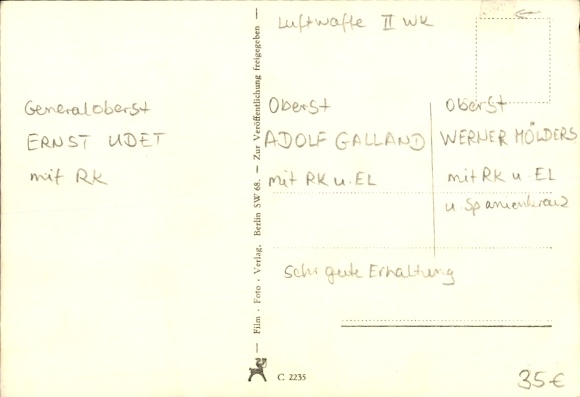 Luftwaffe II WK
Generaloberst
ERNST UDET
mit RK
Oberst
ADOLF GALLAND
mit RK u. EL
Oberst
WERNER MÖLDERS
mit RK u. EL
u. Spanienkreuz
Sehr gute Erhaltung
— Film . Foto . Verlag. Berlin SW 68. — Zur Veröffentlichung freigegeben —
C 2235
35 €